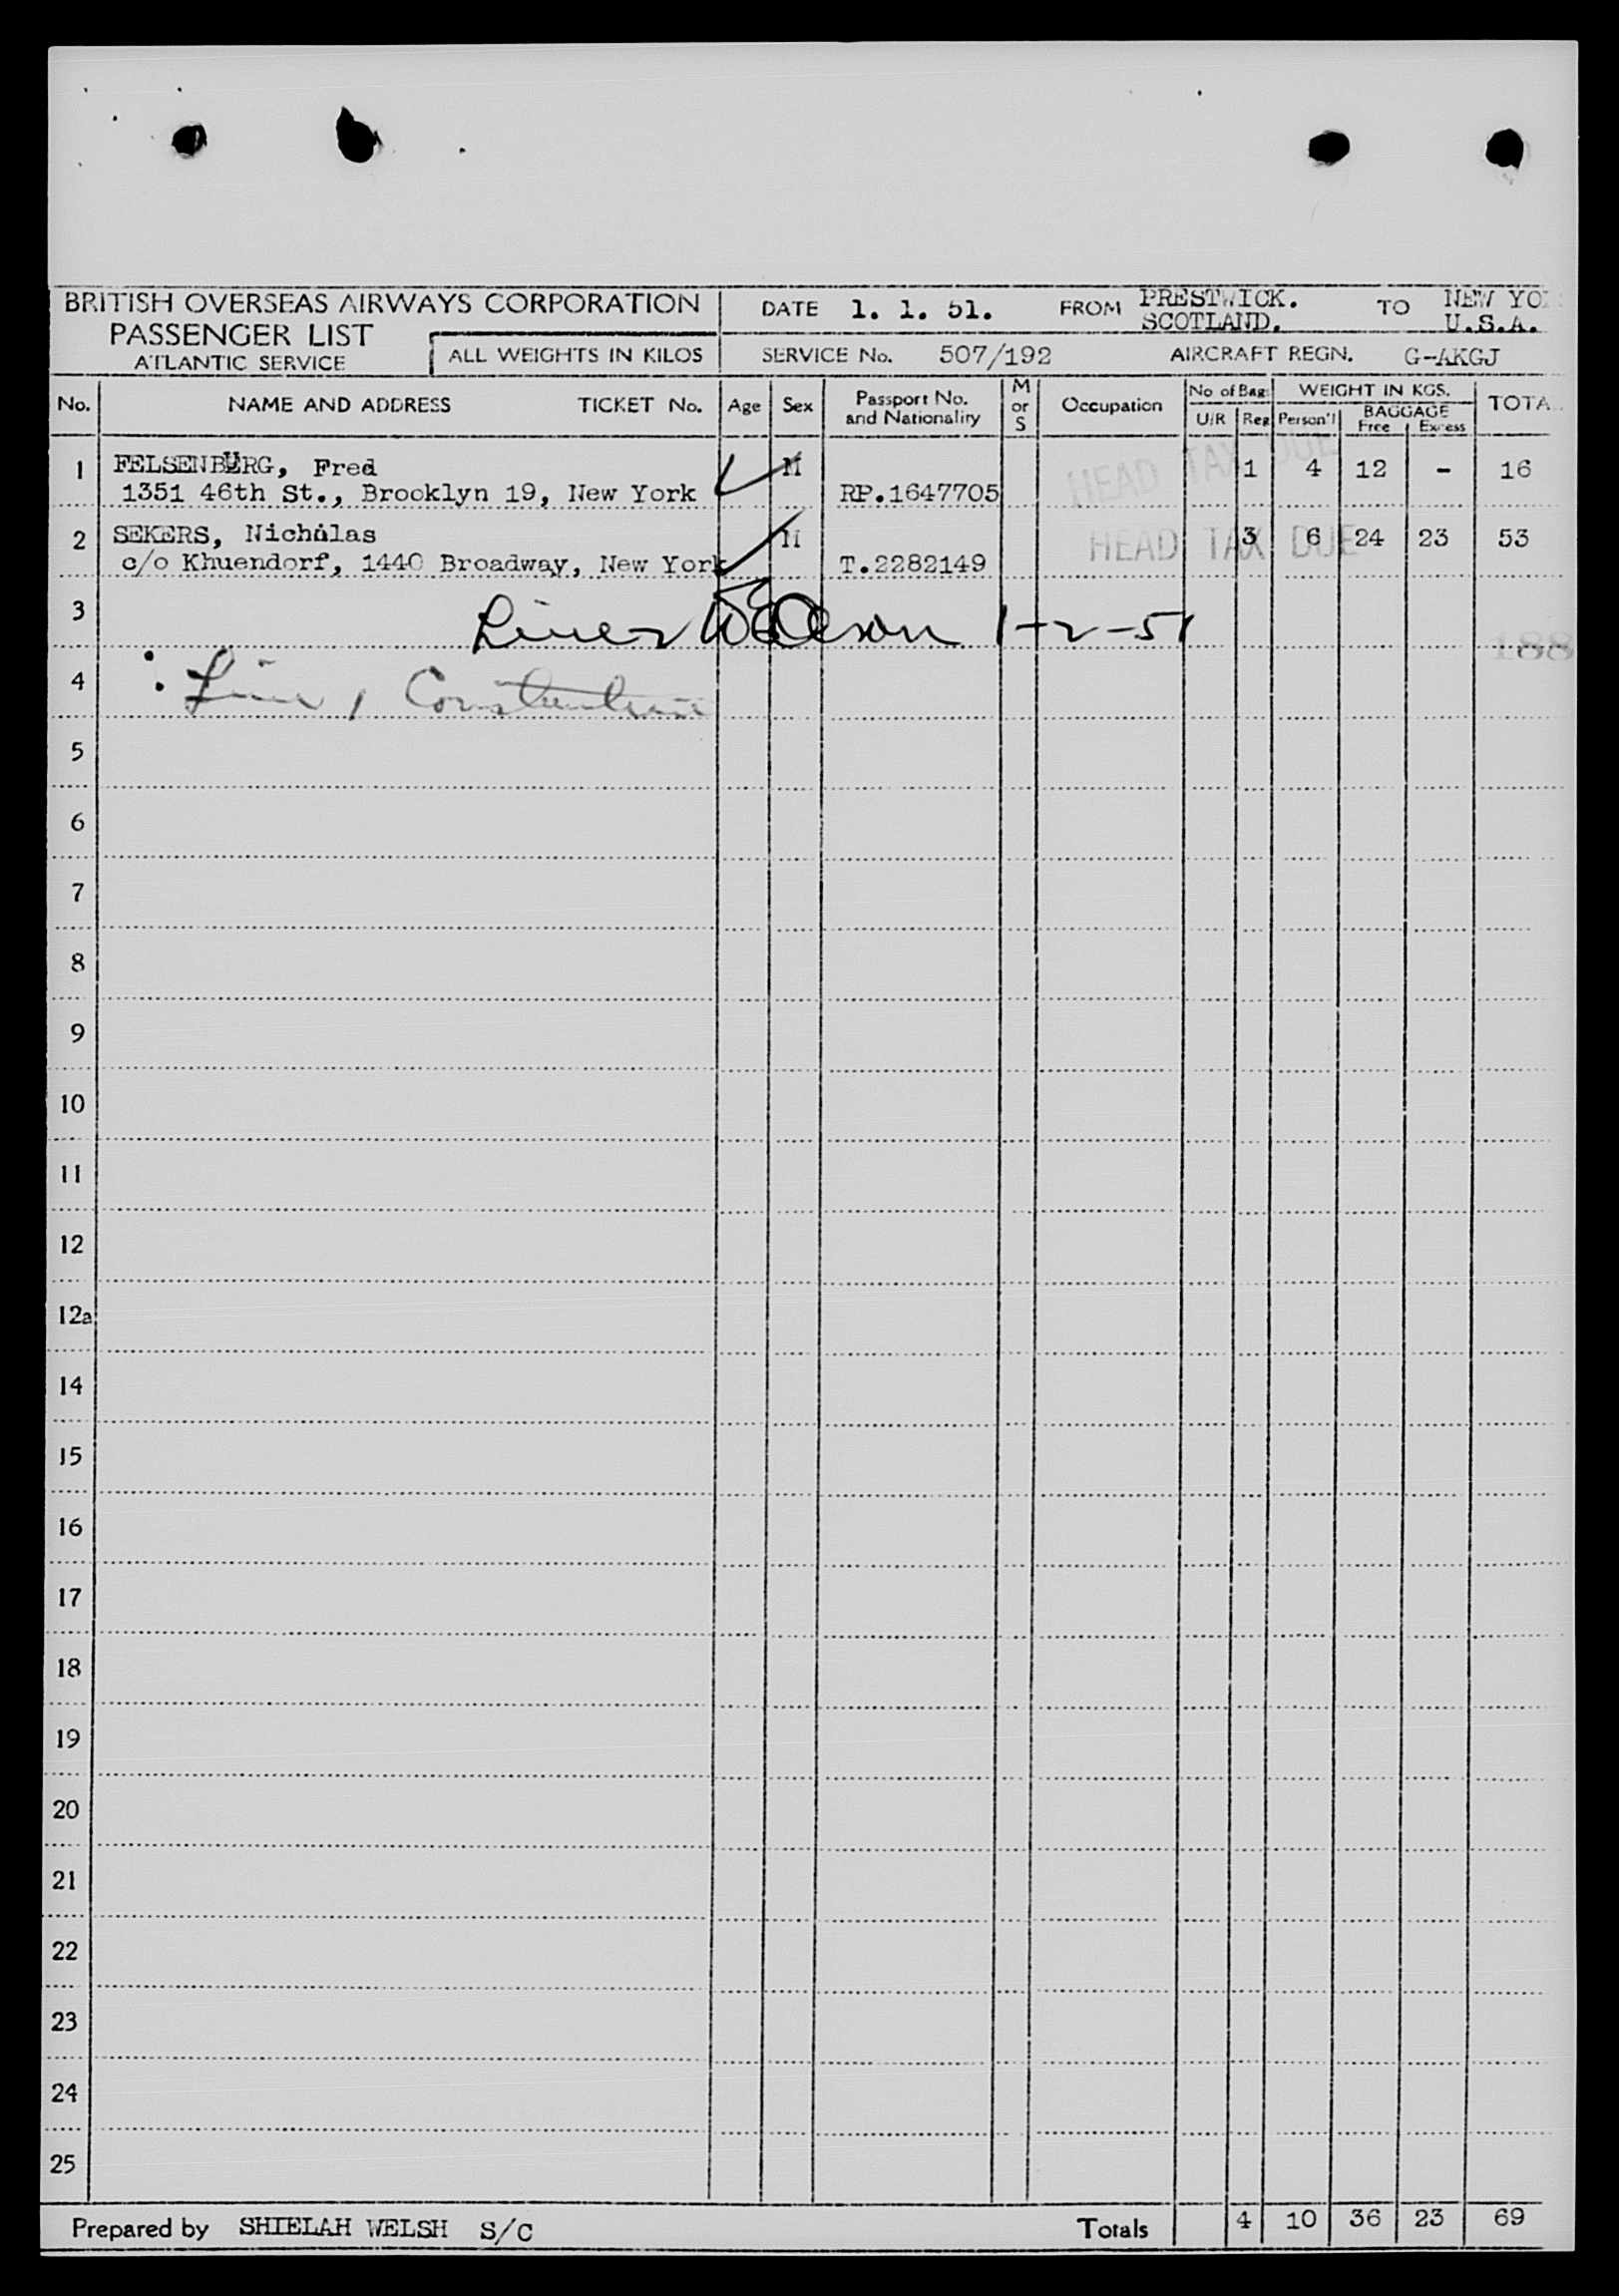 BRITISH OVERSEAS AIRWAYS CORPORATION
PASSENGER LIST
ATLANTIC SERVICE
ALL WEIGHTS IN KILOS
DATE 1. 1. 51. FROM PRESTWICK. SCOTLAND. TO NEW YO U.S.A.
SERVICE No. 507/192 AIRCRAFT REGN. G-AKGJ
No. NAME AND ADDRESS TICKET No. Age Sex Passport No. and Nationality M or S Occupation No of Bag U/R Reg WEIGHT IN KGS. Person'l BAGGAGE Free Excess TOTA
1 FELSENBURG, Fred M 1 4 12 - 16
1351 46th St., Brooklyn 19, New York RP.1647705
HEAD TAX DUE
2 SEKERS, Nicholas M 3 6 24 23 53
c/o Khuendorf, 1440 Broadway, New York T.2282149
HEAD TAX DUE
3 1-2-51
188
4
5
6
7
8
9
10
11
12
12a
14
15
16
17
18
19
20
21
22
23
24
25
Prepared by SHIELAH WELSH S/C Totals 4 10 36 23 69